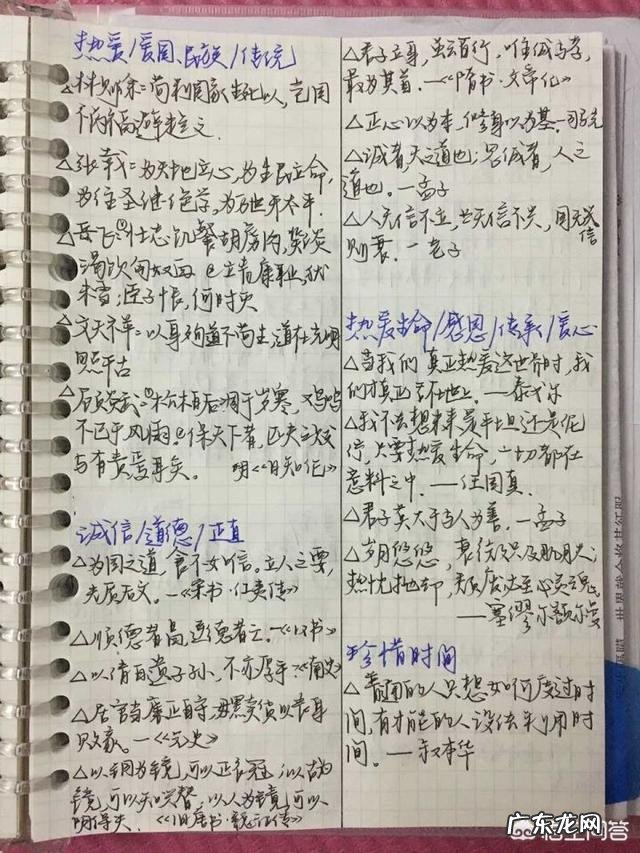 热爱/爱国、民族/传统
△林则徐=苟利国家生死以,岂因
△张载=为天地立心,为生民立命,
为往圣继绝学,为万世开太平.
△岳飞=①壮志饥餐胡虏肉,笑谈
渴饮匈奴血 ②靖康耻,犹
未雪;臣子恨,何时灭
△文天祥=以身殉道不苟生,道在光明
照千古
不已于风雨②保天下者,匹夫之贱
与有责焉耳矣。 明《日知录》
诚信/道德/正直
△为国之道,食不如信。立人之要,
先质后文。—《宋书·江夷传》
△顺德者昌,逆德者亡.—《汉书》
△以清白遗子孙,不亦厚乎.《南史》
△居官当廉正自守,毋黩货以丧身
败家。—《元史》
△以铜为镜,可以正衣冠;以古为
镜,可以知兴替;以人为镜,可以
明得失.《旧唐书·魏征传》
△君子立身,虽云百行,唯诚与孝,
最为其首.—《隋书·文帝纪》
△正心以为本,修身以为基.—司马光
△诚者,天之道也;思诚者,人之
道也。—孟子
△人无信不立,业无信不兴,国无信
则衰.—老子
热爱生命/感恩/传承/爱心
△当我们真正热爱这世界时,我
们才真正生活在世上.——泰戈尔
△我不去想未来是平坦还是泥
泞,只要热爱生命,一切都在
意料之中.——汪国真.
△君子莫大于与人为善.—孟子
△岁月悠悠,衰微只及肌肤;
热忱抛却,颓废必至心灵.
——塞缪尔·厄尔曼
珍惜时间
△普通的人只想如何度过时
间,有才能的人设法利用时
间。——叔本华
悟空问答
广东龙网